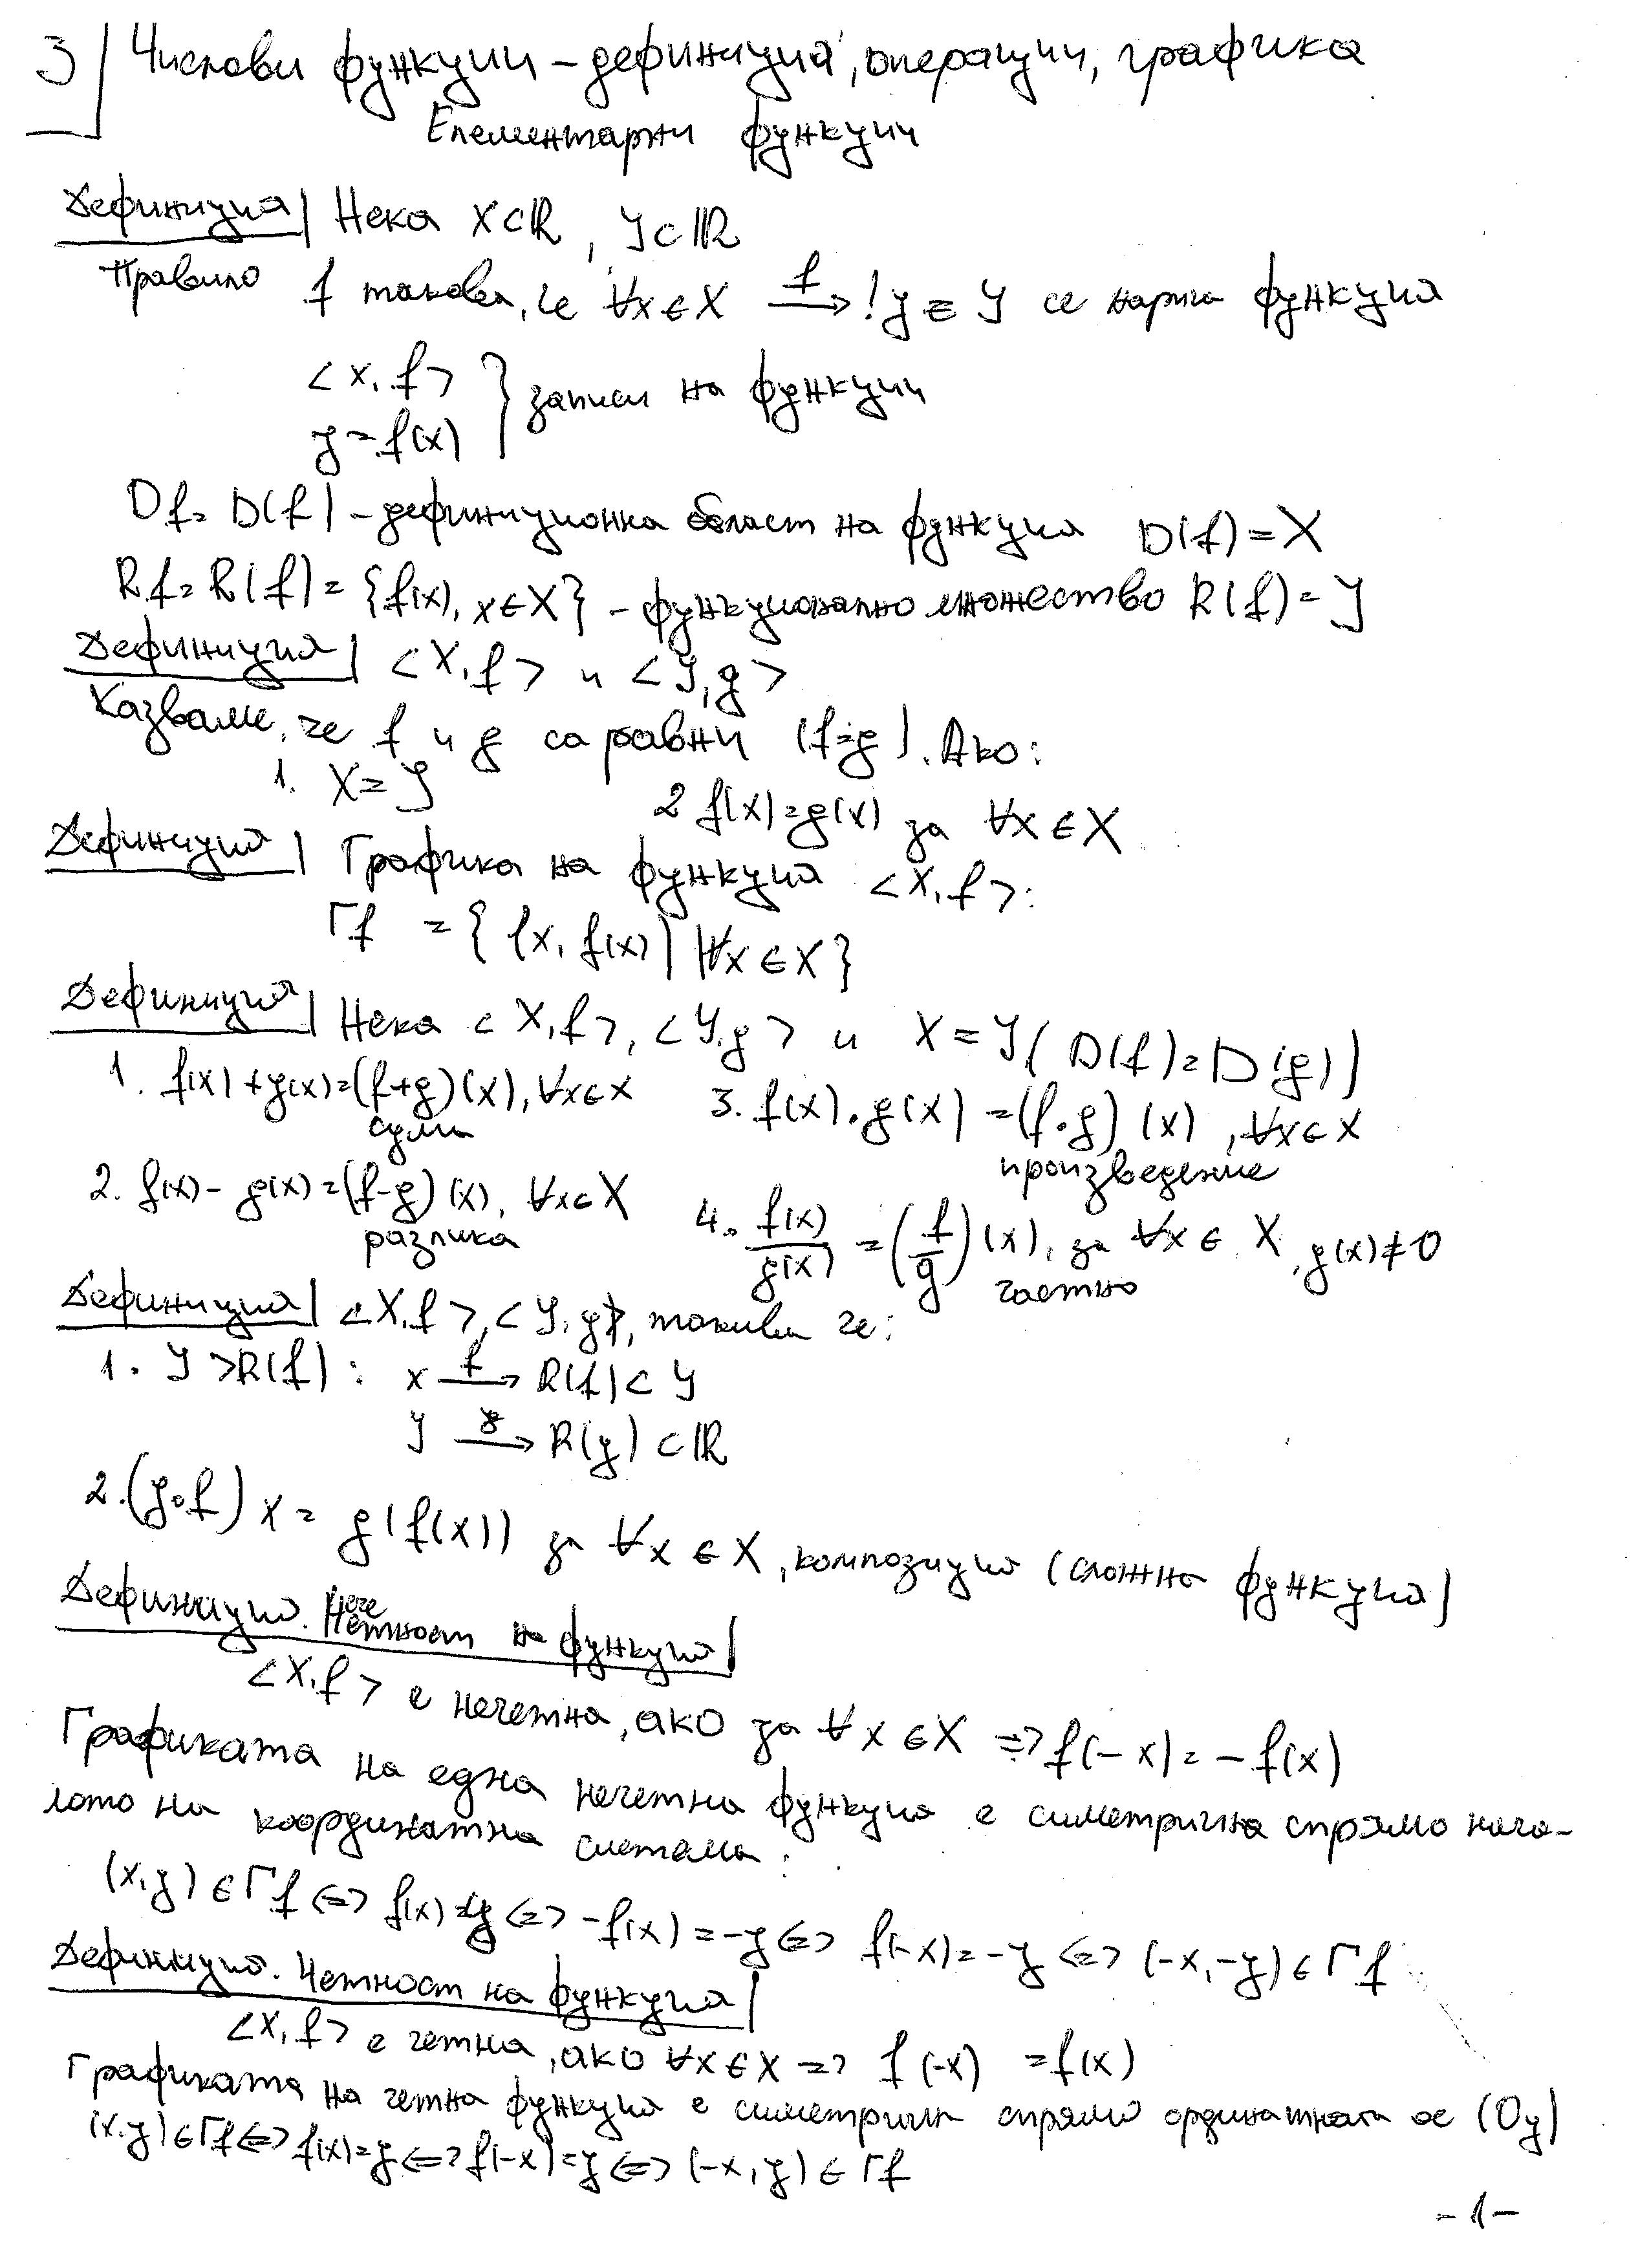 3| Числови функции – дефиниция, операции, графика
Елементарни функции
Дефиниция| Нека X⊂ℝ, Y⊂ℝ
Правило f такова, че ∀x∈X →f !y∈Y се нарича функция
<X, f>
y=f(x) } записи на функции
Df = D(f) – дефиниционна област на функция D(f)=X
Rf = R(f) = {f(x), x∈X} – функционално множество R(f)=Y
Дефиниция| <X, f> и <Y, g>
Казваме, че f и g са равни (f=g). Ако:
1. X=Y 2 f(x)=g(x) за ∀x∈X
Дефиниция| Графика на функция <X, f>:
Гf = {(x, f(x)) | ∀x∈X}
Дефиниция| Нека <X, f>, <Y, g> и X=Y (D(f)=D(g))
1. f(x)+g(x)=(f+g)(x), ∀x∈X 3. f(x).g(x)=(f.g)(x), ∀x∈X
сума произведение
2. f(x)-g(x)=(f-g)(x), ∀x∈X 4. f(x)/g(x) = (f/g)(x), за ∀x∈X, g(x)≠0
разлика частно
Дефиниция| <X, f>, <Y, g>, такива че:
1. Y⊃R(f): x →f R(f)⊂Y
y →g R(g)⊂ℝ
2. (g∘f)x = g(f(x)) за ∀x∈X, композиция (сложна функция)
Дефиниция. Нечетност на функция|
<X, f> е нечетна, ако за ∀x∈X => f(-x)=-f(x)
Графиката на една нечетна функция е симетрична спрямо нача-
лото на координатна система:
(x,y)∈Гf <=> f(x)=y <=> -f(x)=-y <=> f(-x)=-y <=> (-x,-y)∈Гf
Дефиниция. Четност на функция|
<X, f> е четна, ако ∀x∈X => f(-x) =f(x)
Графиката на четна функция е симетрична спрямо ординатната ос (Oy)
(x,y)∈Гf <=> f(x)=y <=> f(-x)=y <=> (-x,y)∈Гf
-1-